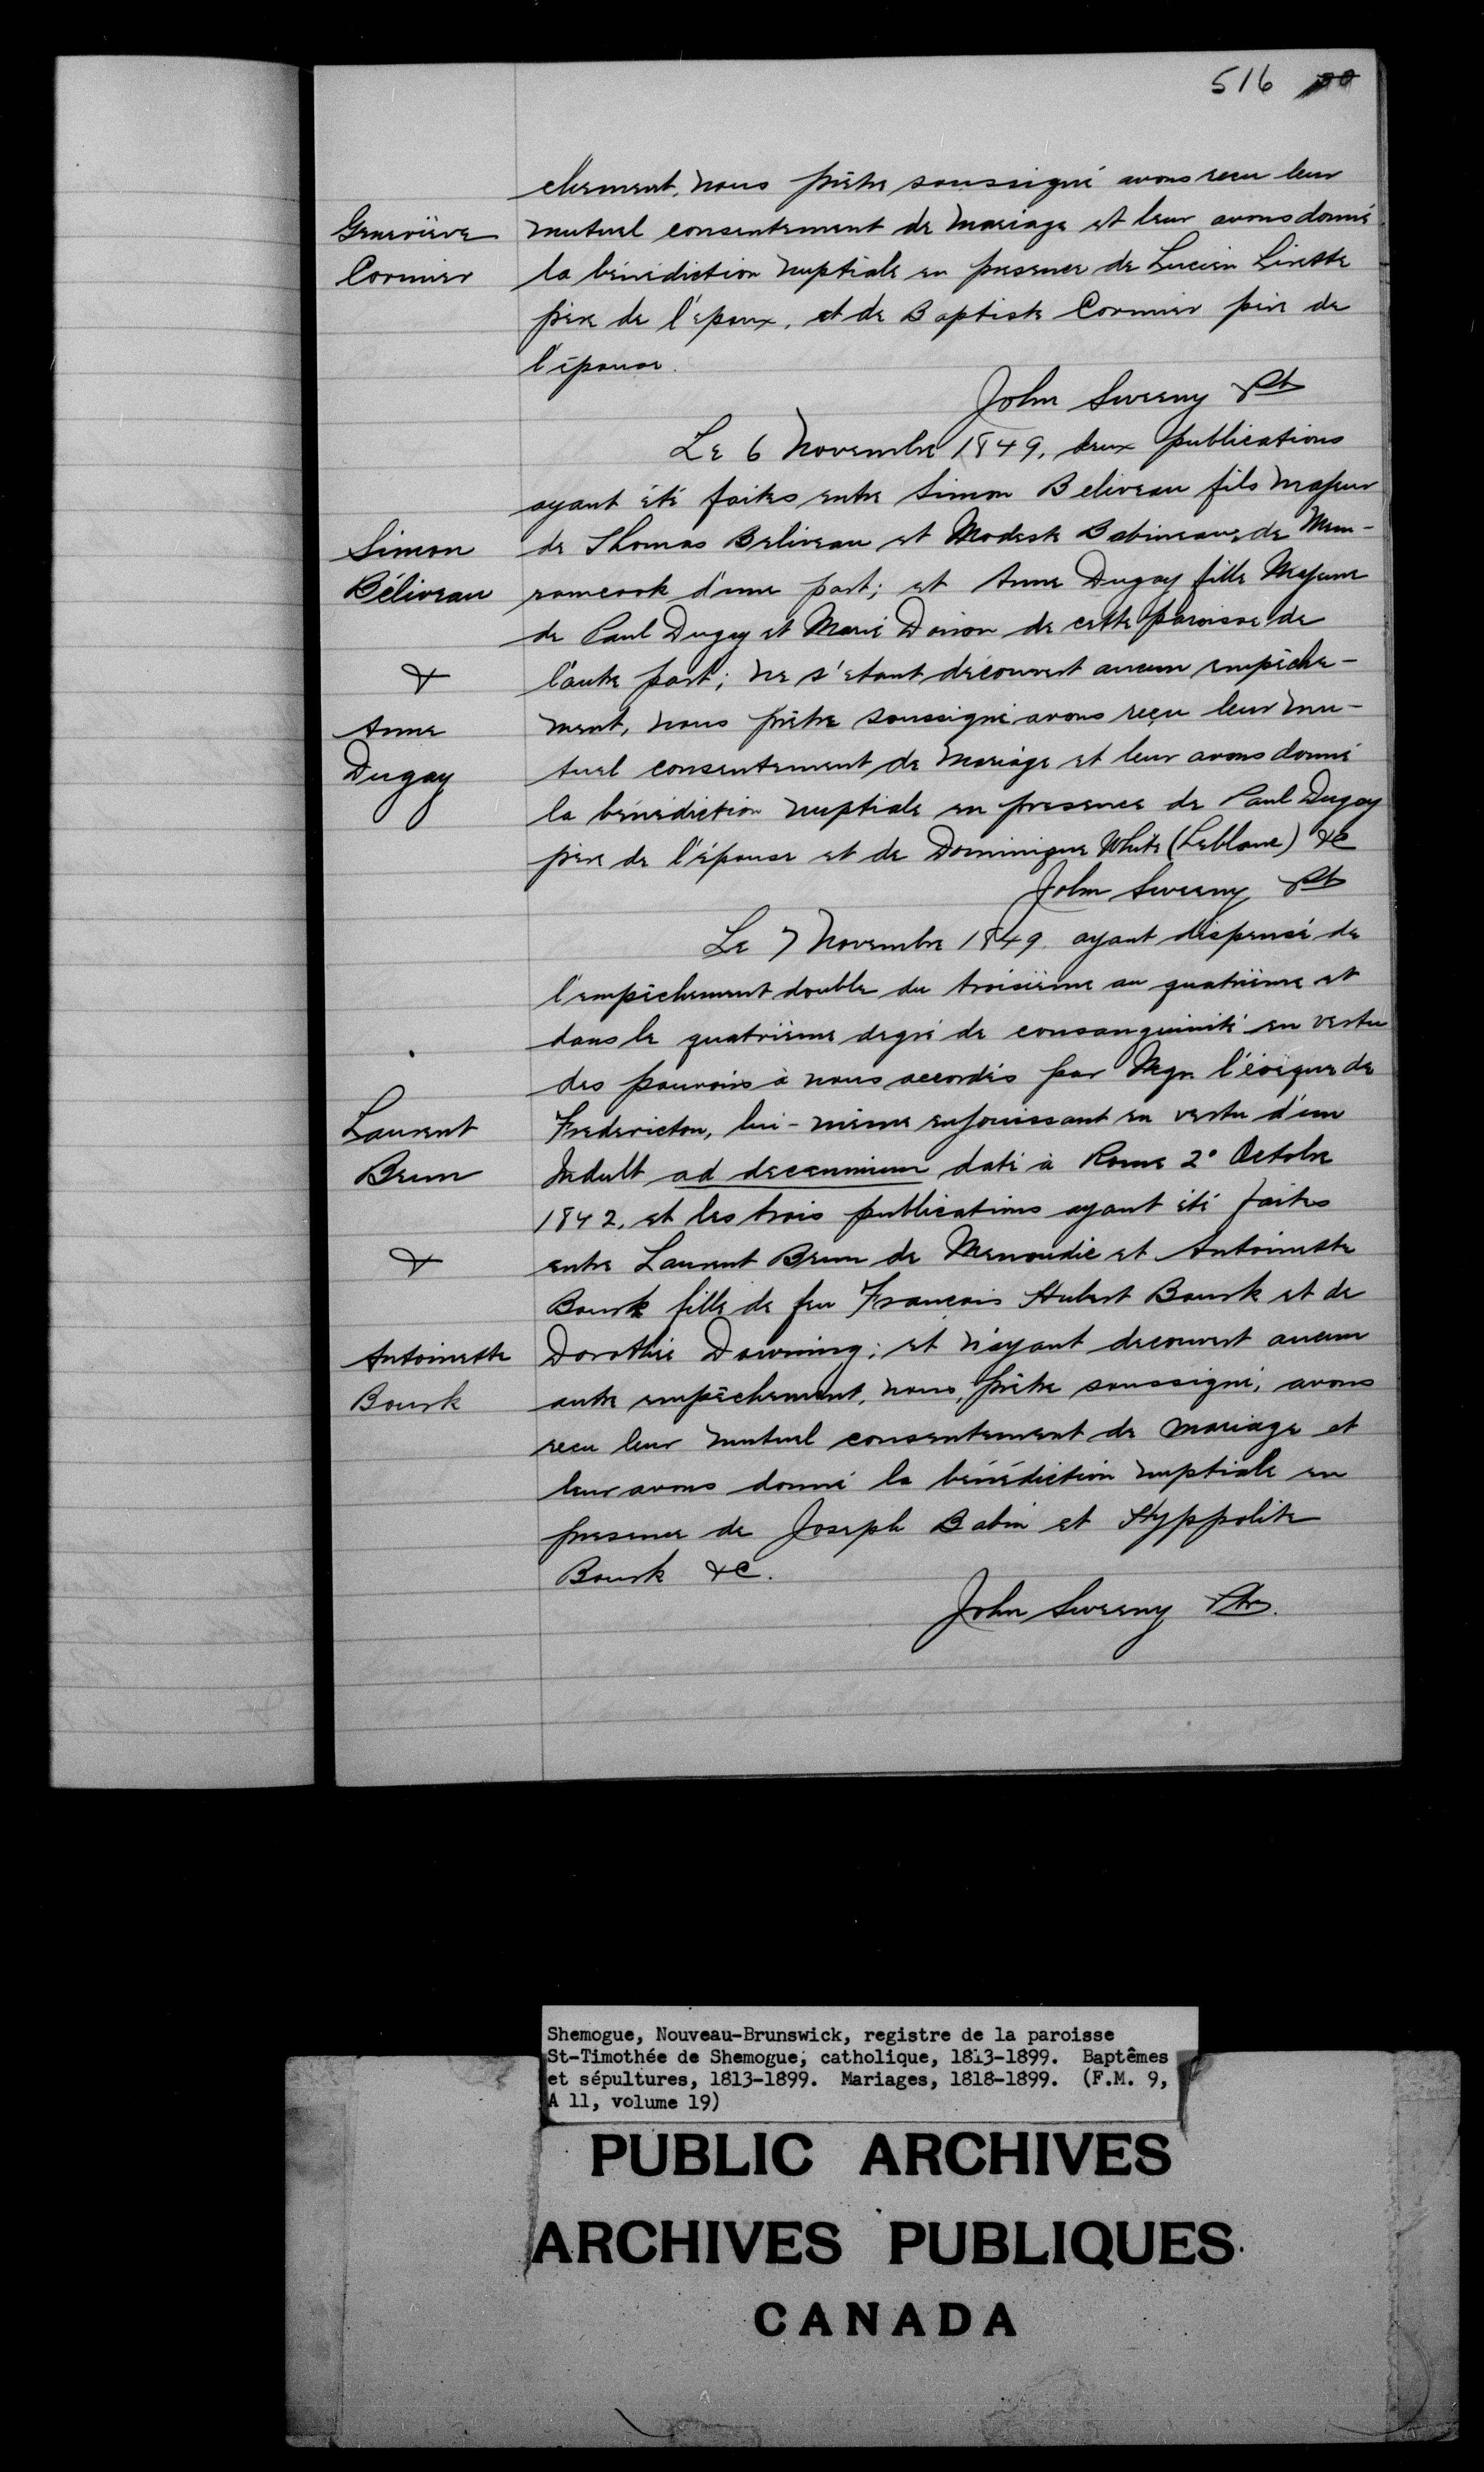 516
chement, nous prêtre soussigné avons recu leur
Geneviève
Cormier
mutuel consentement de mariage et leur avons donné
la bénédiction nuptiale en presence de Lucien Lirette
père de l'époux, et de Baptiste Cormier père de
l'épouse.
John Sweeny Pt
Le 6 Novembre 1849, deux publications
ayant été faites entre Simon Beliveau fils majeur
Simon
Béliveau
&
Anne
Dugay
de Thomas Beliveau et Modeste Babineau de Mem-
romcook d'une part; et Anne Dugay fille Majeure
de Paul Dugay et Marie Doiron de cette paroisse de
l'autre part; ne s'étant découvert aucun empêche-
ment, nous prêtre soussigné avons reçu leur mu-
tuel consentement de mariage et leur avons donné
la bénédiction nuptiale en presence de Paul Dugay
père de l'épouse et de Dominique White (Leblanc) &c
John Sweeny Pt
Le 7 Novembre 1849. ayant dispensé de
l'empêchement double du troisième au quatrième et
dans le quatrième degré de consanguinité en vertu
des pouvoirs à nous accordés par Mgr l'évêque de
Laurent
Brun
&
Antoinette
Bourk
Fredericton, lui-même en jouissant en vertu d'un
Indult ad decennium daté à Rome 2° Octobre
1842, et les trois publications ayant été faites
entre Laurent Brun de Menoudie et Antoinette
Bourk fille de feu Francois Hubert Bourk et de
Dorothée Downing; et n'ayant decouvert aucun
autre empêchement, nous, prêtre soussigné, avons
recu leur mutuel consentement de mariage et
leur avons donné la bénédiction nuptiale en
presence de Joseph Babin et Hyppolite
Bourk &c.
John Sweeny Ptr.
Shemogue, Nouveau-Brunswick, registre de la paroisse
St-Timothée de Shemogue, catholique, 1813-1899. Baptêmes
et sépultures, 1813-1899. Mariages, 1818-1899. (F.M. 9,
A 11, volume 19)
PUBLIC ARCHIVES
ARCHIVES PUBLIQUES
CANADA